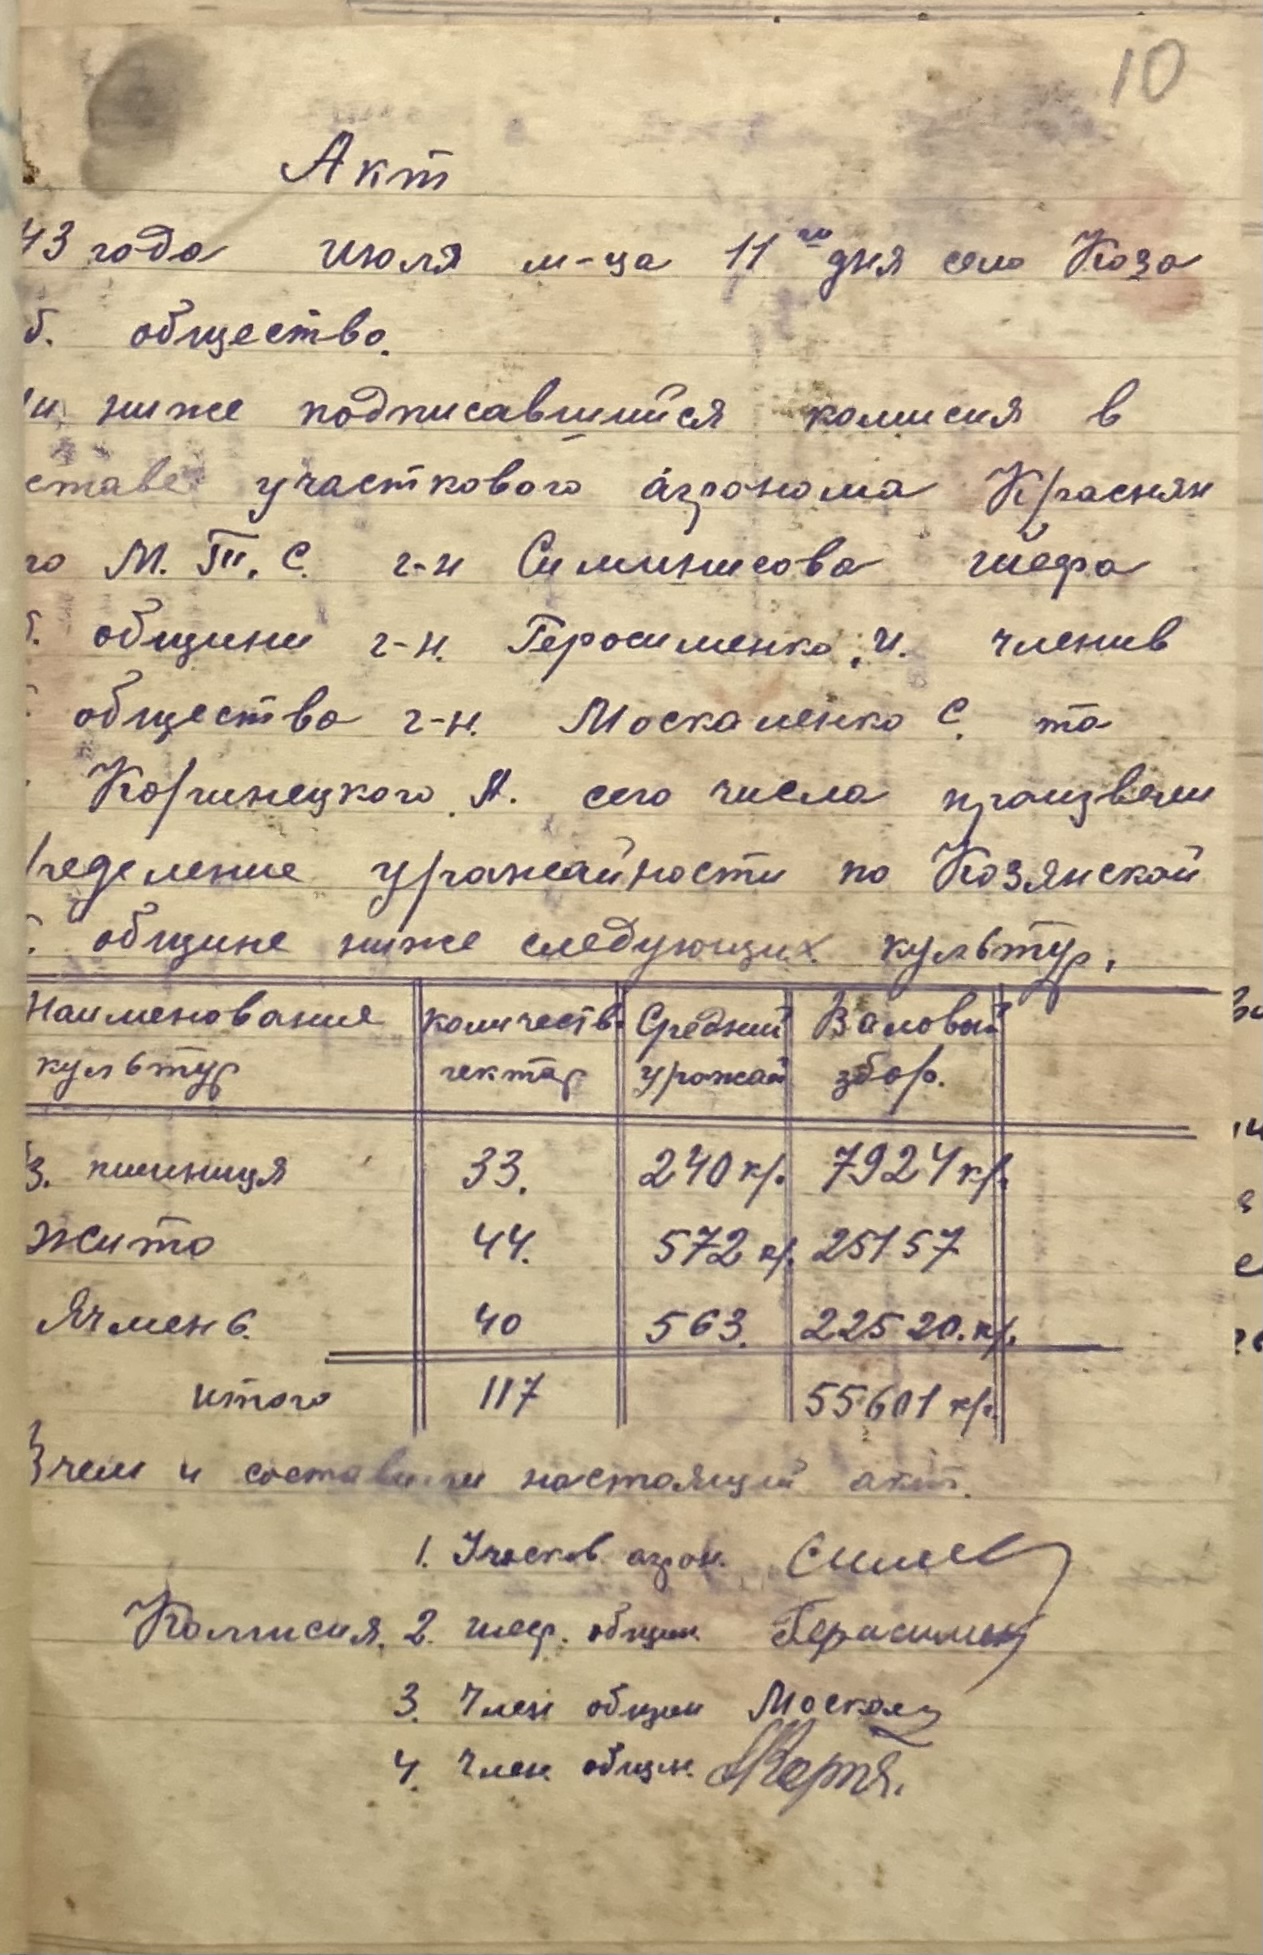 10
Акт
43 года июля м-ца 11го дня село Коза
б. общество.
ниже подписавшийся комисия в
ставе участкового агронома Краснян
го М.Т.С. г-н Симинисова шефа
б. общини г-н. Геросименко, и. членив
общество г-н. Москаленко С. та
Коринецкого А. сего числа произвели
ределение урожайности по Козянской
общине ниже следующих культур.
Наименования культур количеств. гектар Средний урожай Валовый збор.
з. пшиниця 33. 240 кг. 7924 кг.
Жито 44. 572 кг. 25157
Ячмень 40 563. 22520. кг.
итого 117 55601 кг.
Вчем и составили настоящий акт.
1. Учасков. агрон.
Комисия. 2. шеф. общин Герасимен
3. Член общин Москал
4. Член. общин.